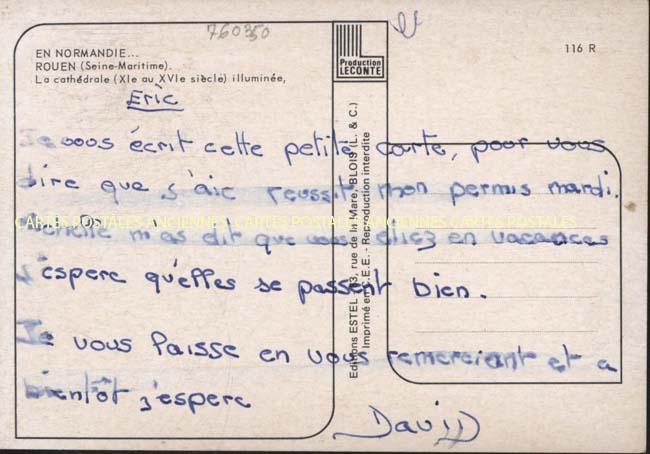 760350
EN NORMANDIE...
ROUEN (Seine-Maritime).
La cathédrale (XIe au XVIe siècle) illuminée,
Production
LECONTE
116 R
Eric
Je vous écrit cette petite carte, pour vous
dire que j'aie reussit mon permis mardi.
m'as dit que vous étiez en vacances
j'espere qu'elles se passent bien.
Je vous laisse en vous remerciant et a
bientôt j'espere
David
Editions ESTEL 63, rue de la Mare, BLOIS (L. & C.)
Imprimé en C.E.E. - Reproduction interdite
CARTES POSTALES ANCIENNES CARTES POSTALES ANCIENNES CARTES POSTALES